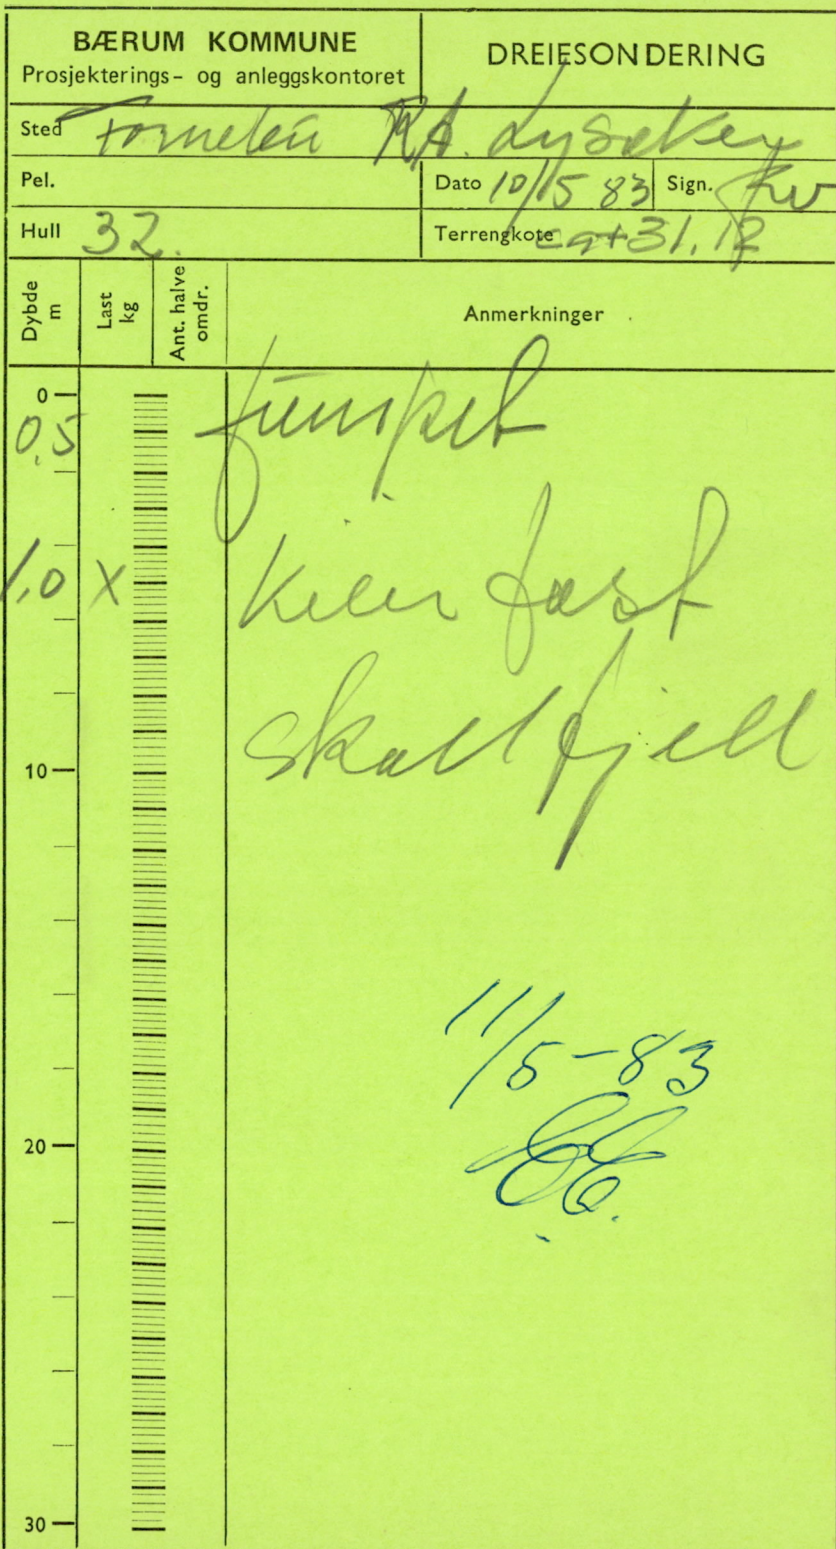 BÆRUM KOMMUNE
Prosjekterings- og anleggskontoret
DREIESONDERING
Sted
Pel.
Dato 10/5 83 Sign.
Hull 32.
Terrengkote +31.12
Dybde m
Last kg
Ant. halve omdr.
Anmerkninger
0
0,5
1,0 X Kiler fast
skallfjell
10
11/5-83
20
30